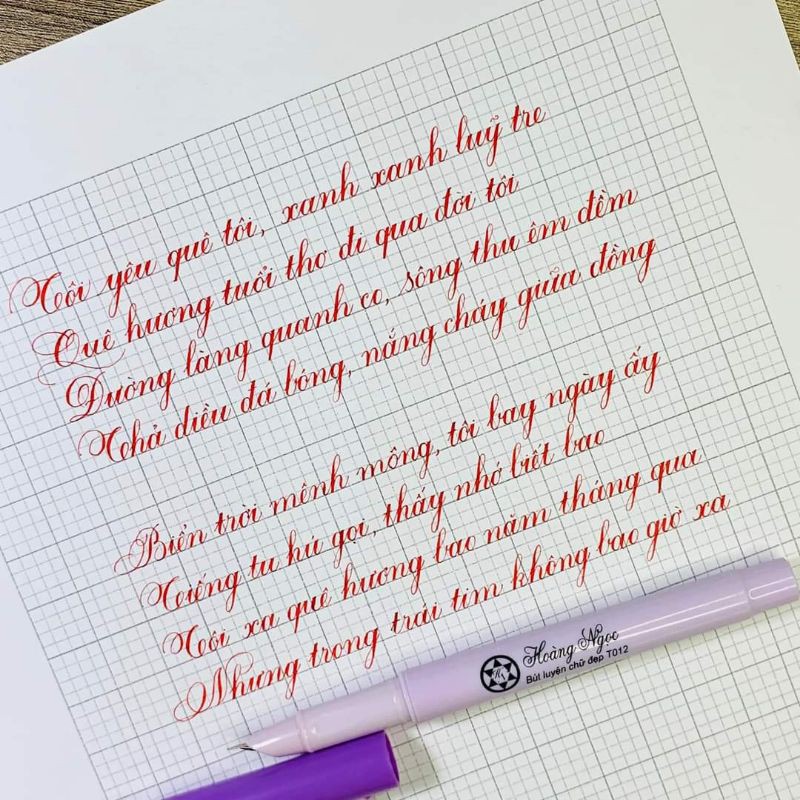 Tôi yêu quê tôi, xanh xanh luỹ tre
Quê hương tuổi thơ đi qua đời tôi
Đường làng quanh co, sông thu êm đềm
Thả diều đá bóng, nắng cháy giữa đồng
Biển trời mênh mông, tôi bay ngày ấy
Tiếng tu hú gọi, thấy nhớ biết bao
Tôi xa quê hương bao năm tháng qua
Nhưng trong trái tim không bao giờ xa
Hoàng Ngọc
Bút luyện chữ đẹp T012